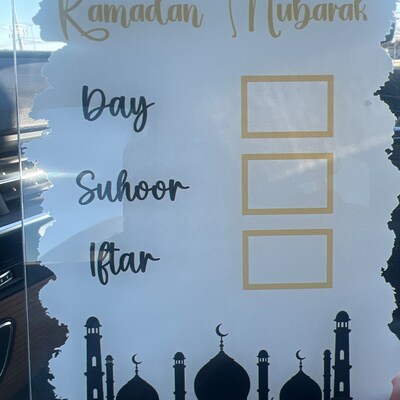 Ramadan Mubarak
Day
Suhoor
Iftar